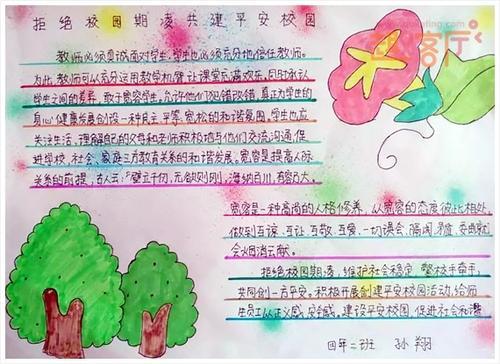 拒绝校园期凌共建平安校园
教师必须真诚面对学生,学生也必须充分地信任教师。
为此,教师可以充分运用教学机智,让课堂充满欢乐,同时承认
学生之间的差异,敢于宽容学生,允许他们犯错改错,真正为学生的
身心健康发展创设一种民主、平等、宽松的和谐氛围,学生也应
关注生活,理解自己的父母和老师积极地与他们交流沟通,促
进学校、社会、家庭三方教育关系的和谐发展,宽容是提高人际
关系的前提,古人云:“壁立千仞,无欲则刚,海纳百川,有容乃大。
宽容是一种高尚的人格修养,从宽容的态度彼此相处,
做到互谅、互让、互敬、互爱,一切误会、隔阂、矛盾、委曲就
会烟消云散。
拒绝校园期凌,维护社会稳定,警校手牵手,
共同创一方平安。积极开展创建平安校园活动,给师
生员工以正义感、安全感。建设平安校园,促进社会和谐
四年二班 孙翔